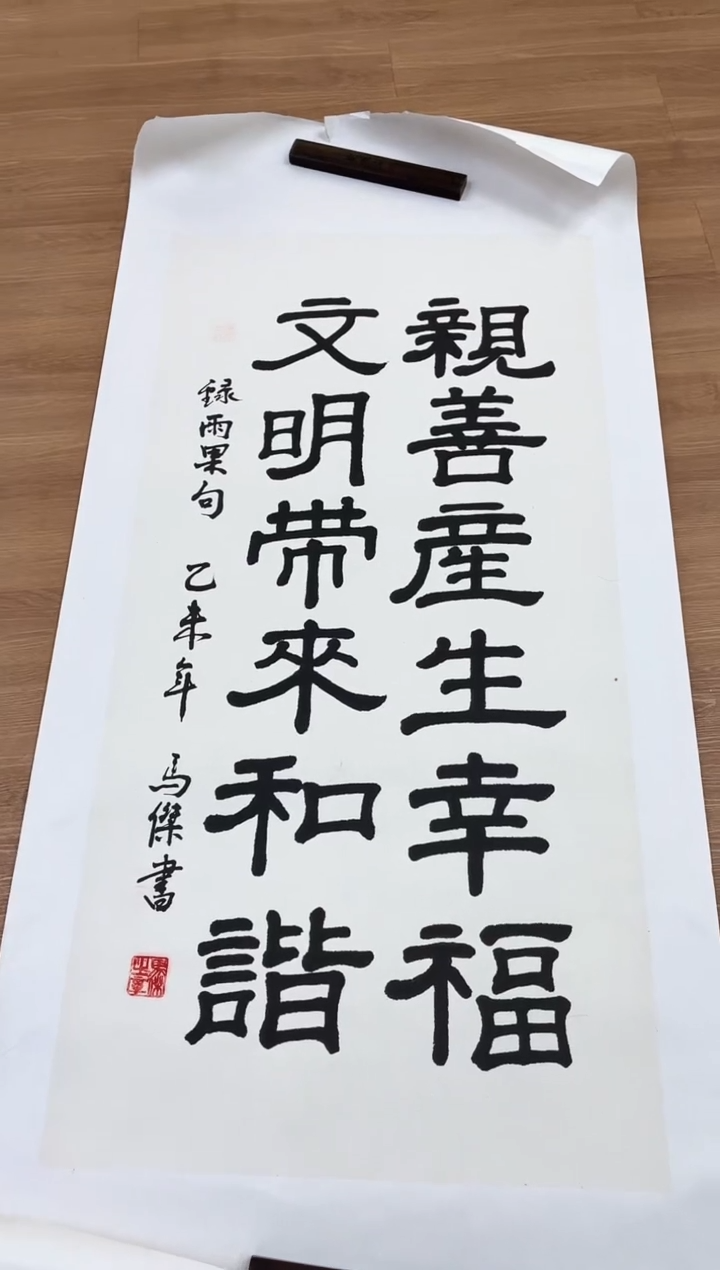 親善産生幸福
文明帶來和諧
録雨果句 乙未年 馬傑書